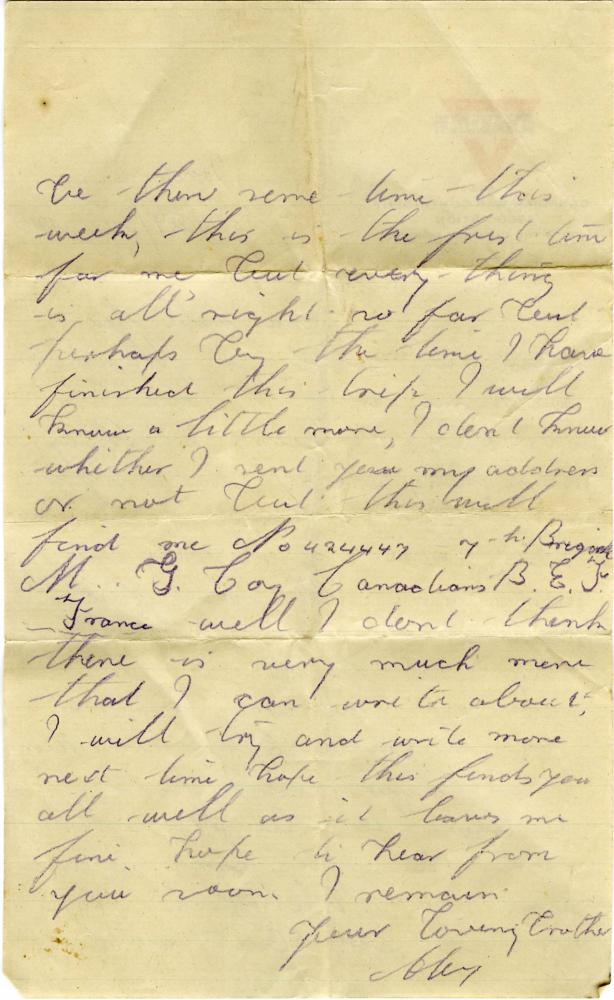 be there some time this
week, this is the first time
for me but every thing
is all right so far but
perhaps by the time I have
finished this trip I will
know a little more, I dont know
whether I sent you my address
or not but this will
find me No 424447 7th Brigade
M. G. Coy Canadians B. E. F.
France well I dont think
there is very much more
that I can write about,
I will try and write more
next time hope this finds you
all well as it leaves me
fine hope to hear from
you soon. I remain
your loving brother
Alex